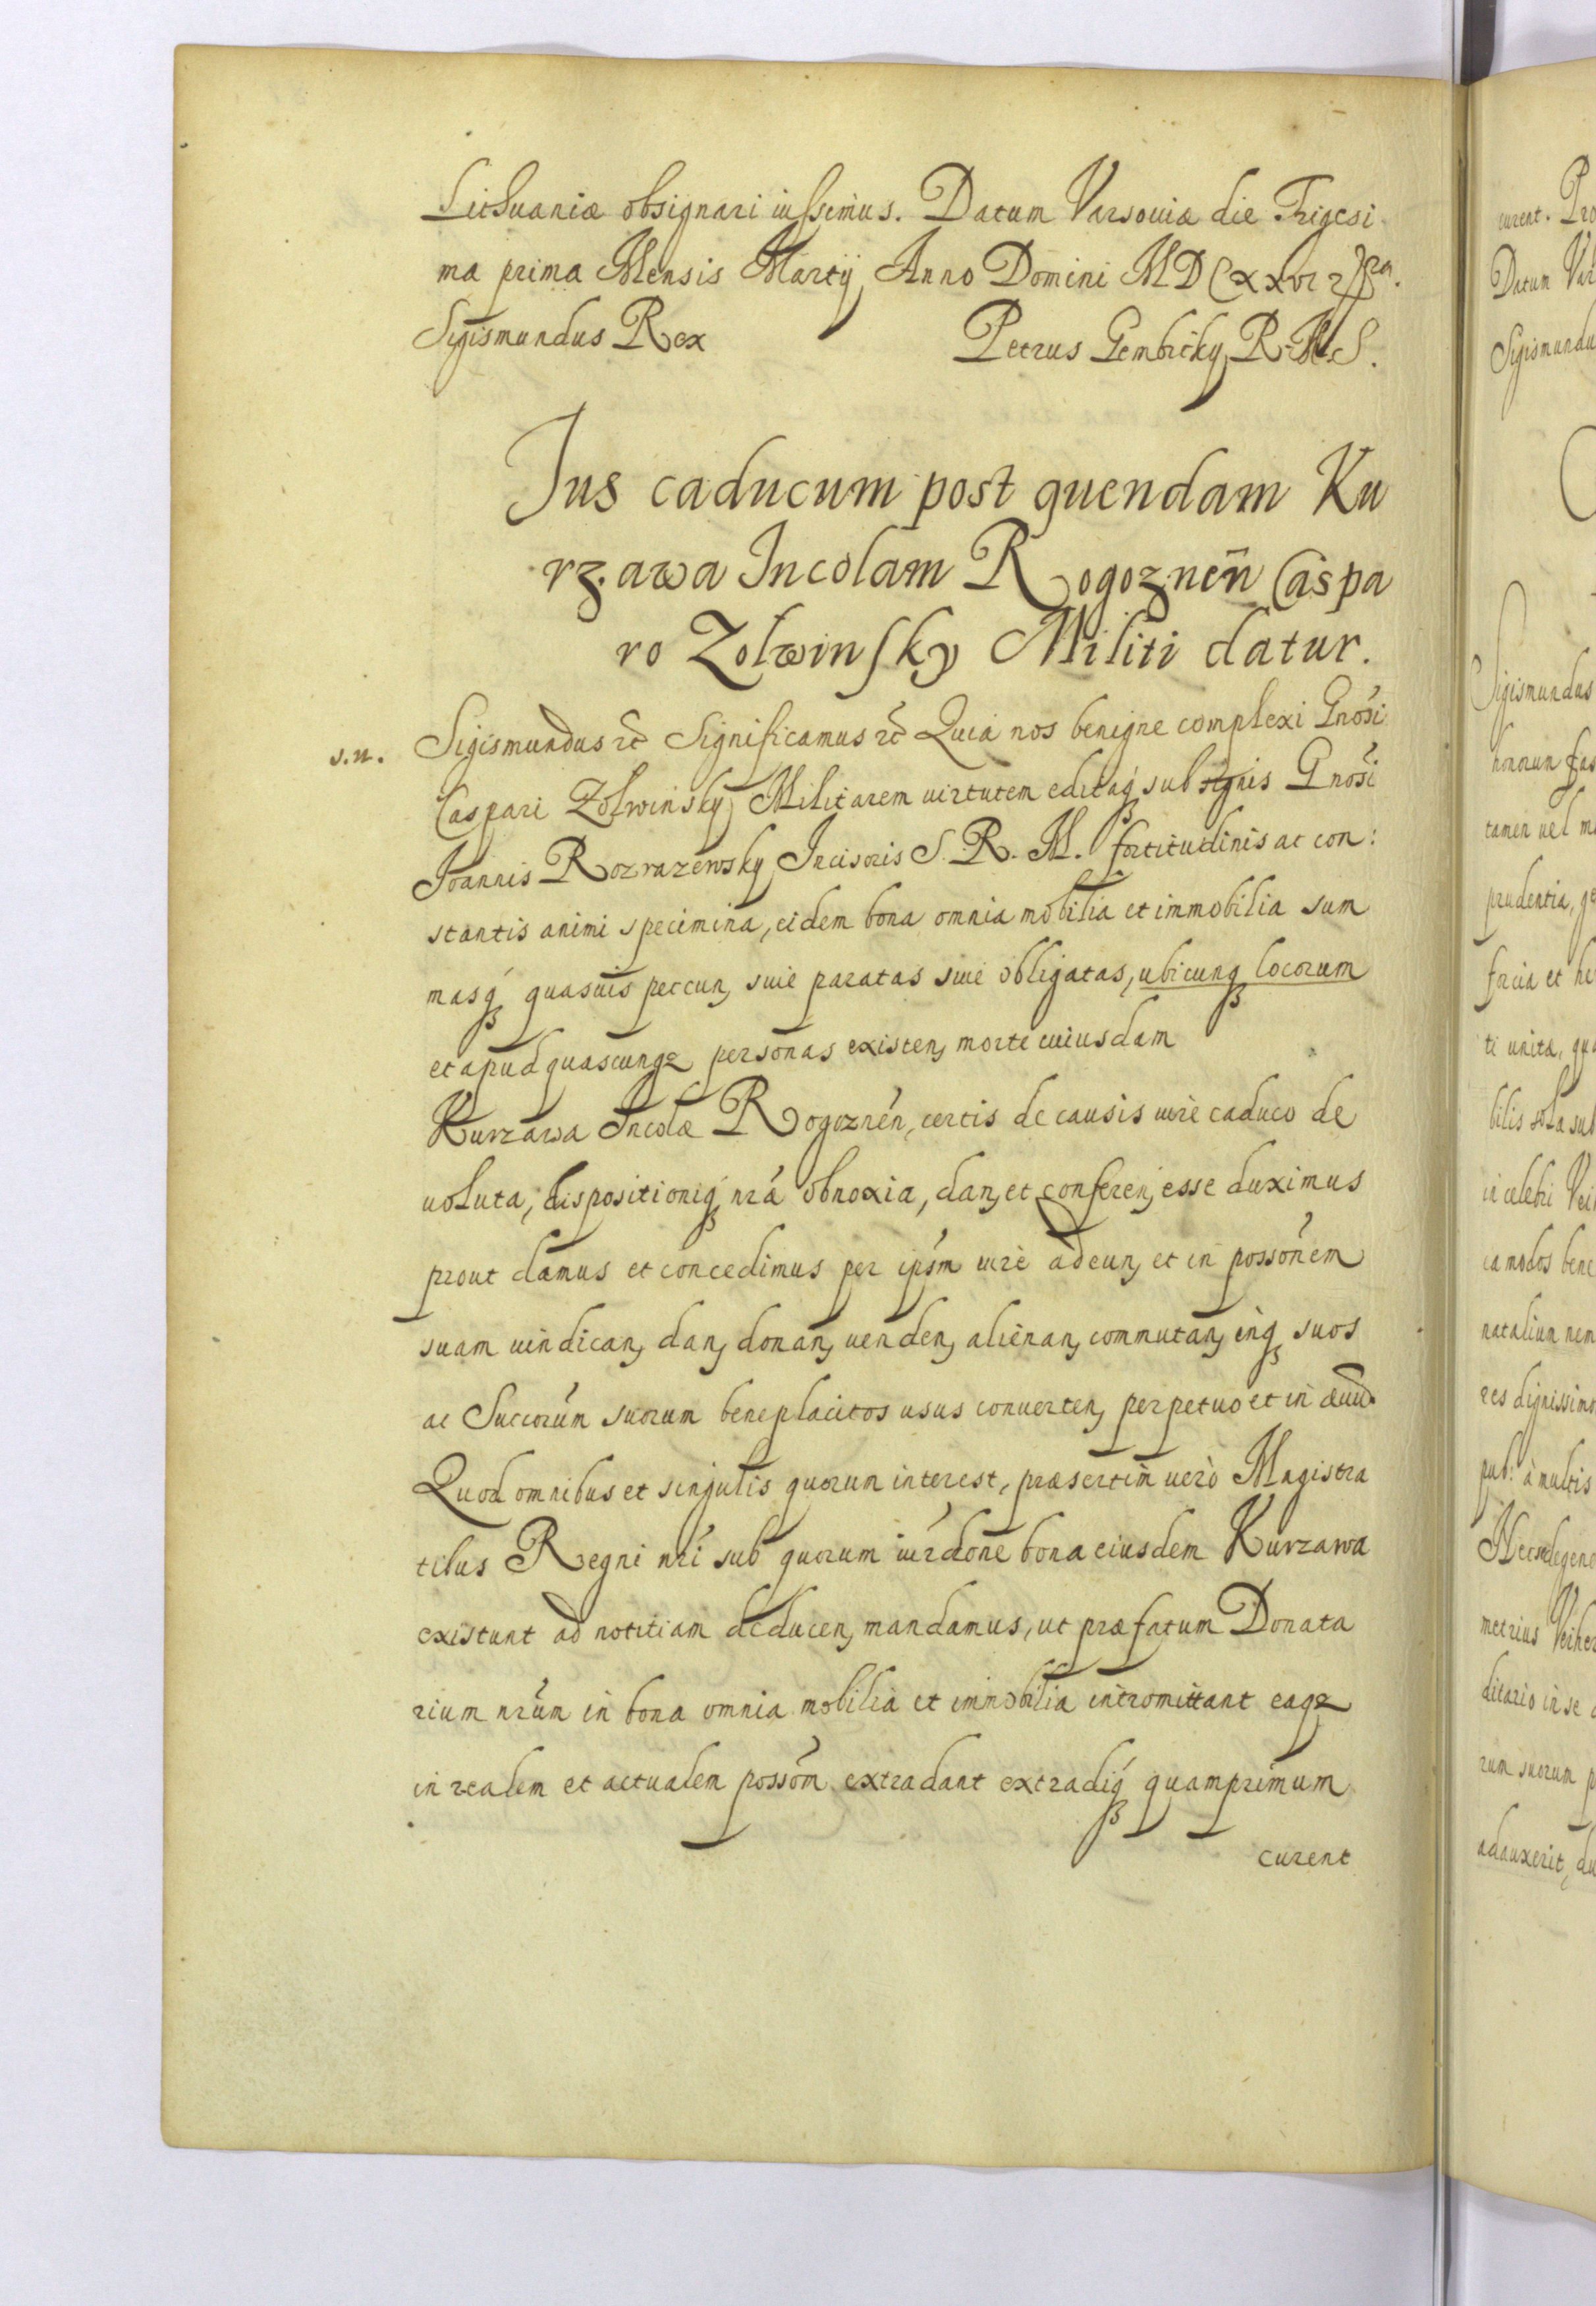 Lithuaniæ obsignari iussimus. Datum Varsouiæ die Trigesi
ma prima Mensis Martij Anno Domini MDCxxvii
Sigismundus Rex Petrus Gembicky R. M. S.
Jus caducum post quendam Ku
rzawa Incolam Rogoznen̄ Caspa
ro Zolwinsky Militi datur.
s.n. Sigismundus etc̃ Significamus etc̃ Quia nos benigne complexi Gnosi
Caspari Zolwinsky Militarem uirtutem editaq́ sub signis Gnosi
Joannis Rozrazewsky Incisoris S. R. M. fortitudinis ac con:
stantis animi specimina, eidem bona omnia mobilia et immobilia sum
masq́ quasuis peccun, siue paratas siue obligatas, ubicunq locorum
et apud quascunqz personas existen, morte cuiusdam
Kurzawa Incolæ Rogoznén, certis de causis iure caduco de
uoluta, dispositioniq́ nrá obnoxia, dan, et conferen, esse duximus
prout damus et concedimus per ipsm iure adeun, et in possonem
suam uindican, dan, donan, uenden, alienan, commutan, inq suos
ac Succorum suorum beneplacitos usus conuerten, perpetuo et in æuũ.
Quod omnibus et singulis quorum interest, præsertim uerò Magistra
tibus Regni nri sub quorum iurdone bona eiusdem Kurzawa
existunt ad notitiam deducen, mandamus, ut præfatum Donata
rium nrum in bona omnia mobilia et immobilia intromittant eaqz
in realem et actualem possom extradant extradiq́ quamprimum
curent